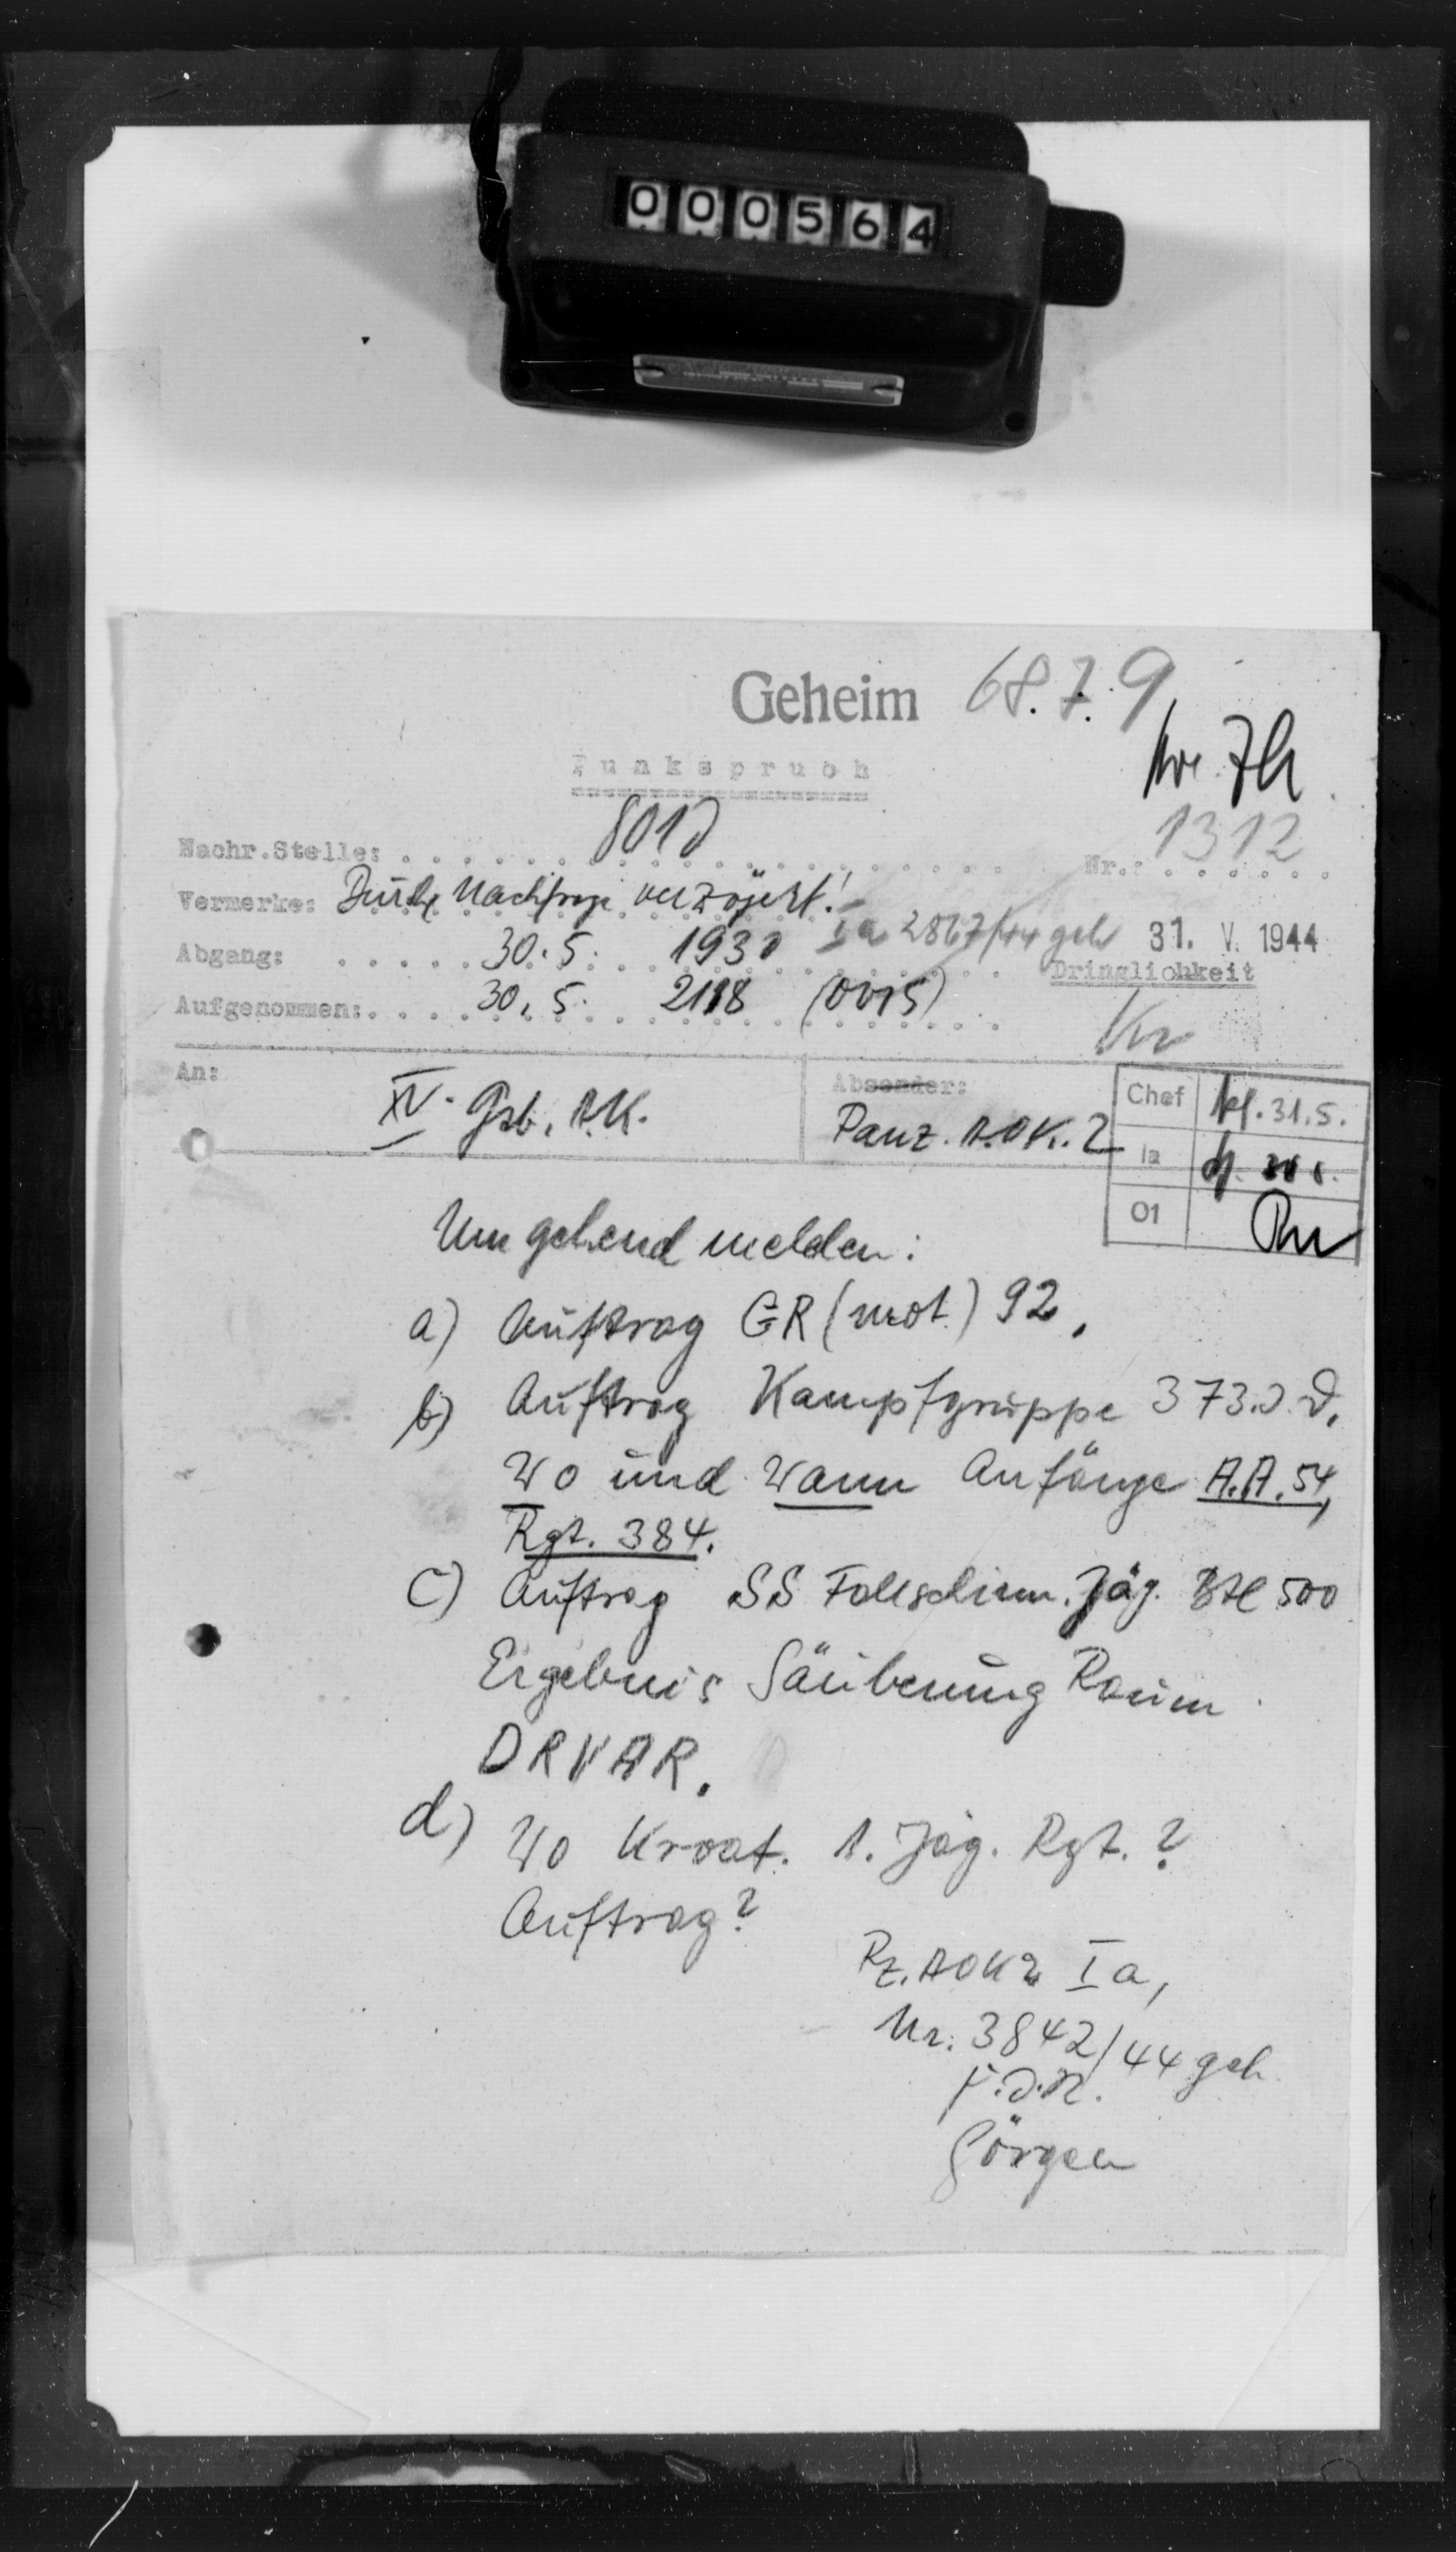 000564
Geheim 68.7.9
Funkspruch
Nachr.Stelle: 801
Nr.: 1312
Vermerke: Durch Nachfrage verzögert!
Ia 2867/44 geh 31. V. 1944
Abgang: 30.5. 1930
Dringlichkeit
Aufgenommen: 30.5. 2118 (0015)
Kr
An: XV. Geb. A.K.
Absender: Panz. A.O.K. 2
Chef 31.5.
Ia
O1
Umgehend melden:
a) Auftrag GR (mot.) 92.
b) Auftrag Kampfgruppe 373. J.D.
Wo und Wann Anfänge A.A. 54,
Rgt. 384.
c) Auftrag SS Fallschirm. Jäg. Btl 500
Ergebnis Säuberung Raum
DRVAR.
d) Wo Kroat. 1. Jäg. Rgt.?
Auftrag?
Pz. AOK 2 Ia,
Nr. 3842/44 geh
F.d.R.
Görgen